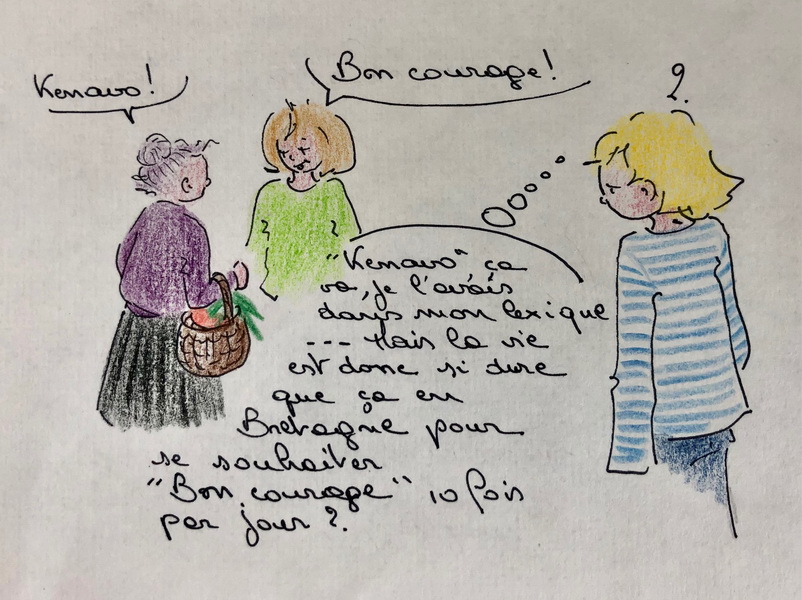 Kenavo!
Bon courage!
?
"Kenavo" ça
va, je l'avais
dans mon lexique
--- Mais la vie
est donc si dure
que ça en
Bretagne pour
se souhaiter
"Bon courage" 10 fois
par jour ?.